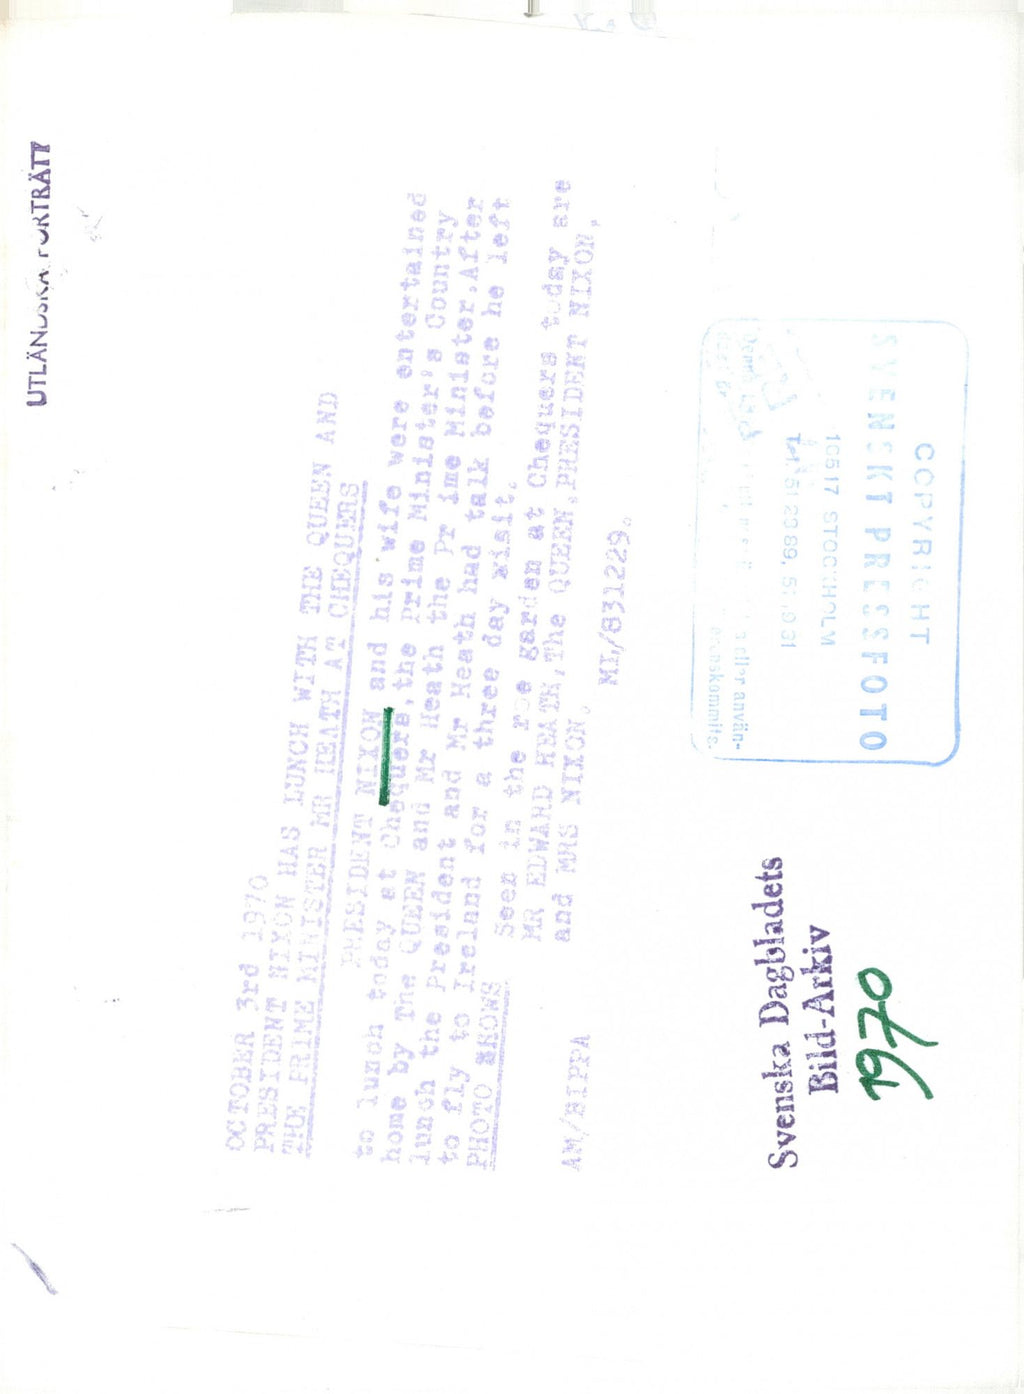 UTLÄNDSKA PORTRÄTT
OCTOBER 3rd 1970
PRESIDENT NIXON HAS LUNCH WITH THE QUEEN AND
THE PRIME MINISTER MR HEATH AT CHEQUERS
PRESIDENT NIXON and his wife were entertained
to lunch today at Chequers, the Prime Minister's Country
home by The QUEEN and Mr Heath the Pr ime Minister. After
lunch the President and Mr Heath had talk before he left
to fly to Ireland for a three day visit.
PHOTO SHOWS Seen in the rose garden at Chequers today are
MR EDWARD HEATH, The QUEEN, PRESIDENT NIXON,
and MRS NIXON.
AM/BIPPA ML/831229.
Svenska Dagbladets
Bild-Arkiv
1970
COPYRIGHT
SVENSKT PRESSFOTO
10517 STOCKHOLM
Tel.